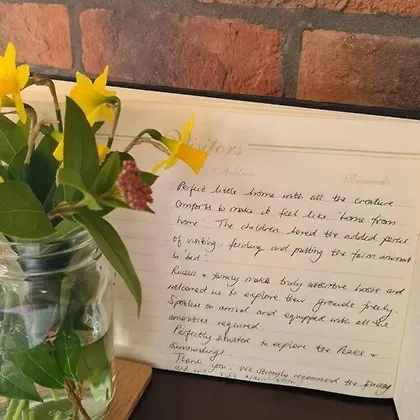 Visitors
Address
Remarks
Perfect little home with all the creature
comforts to make it feel like 'home from
home'. The children loved the added perks
of visiting, feeding and putting the farm animals
to 'bed'.
Russell + family make truly attentive hosts and
welcomed us to explore their grounds freely.
Spotless on arrival and equipped with all the
amenities required.
Perfectly situated to explore the Peaks +
surroundings.
Thank you! We strongly recommend the
and will visit again soon!